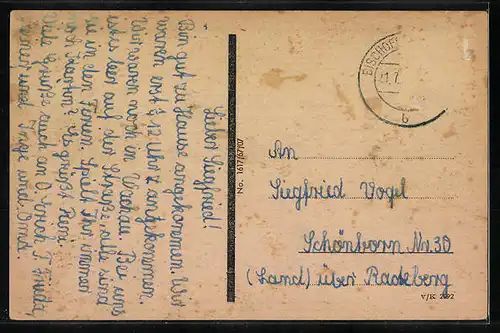 Lieber Siegfried!
Bin gut zu Hause angekommen. Wir
waren erst ½ 12 Uhr angekommen.
Wir waren noch in Wachau. Bei uns
ist es leer auf der Straße, alle sind
sie in den Ferien. Spielt Ihr immer
noch Kasten? Es grüßt Reni.
Viele Grüße auch an O. Erich, T. Friedel,
Oma und Opa.
BISCHOF
b
No. 1617/67/0
An
Siegfried Vogel
Schönborn Nr. 30
(Land) über Radeberg
V/K 2